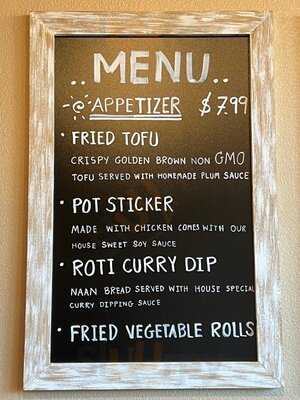 ..MENU..
@ APPETIZER $7.99
• FRIED TOFU
CRISPY GOLDEN BROWN NON GMO
TOFU SERVED WITH HOMEMADE PLUM SAUCE
• POT STICKER
MADE WITH CHICKEN COMES WITH OUR
HOUSE SWEET SOY SAUCE
• ROTI CURRY DIP
NAAN BREAD SERVED WITH HOUSE SPECIAL
CURRY DIPPING SAUCE
• FRIED VEGETABLE ROLLS